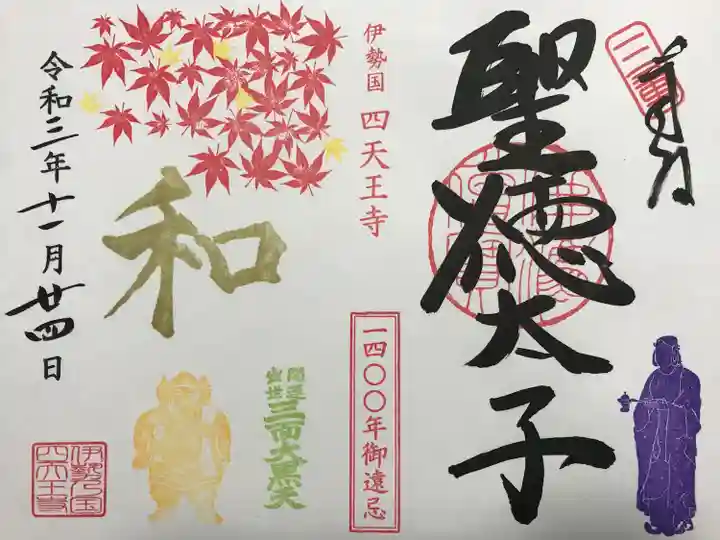 奉拝
三重
聖徳太子
伊勢国 四天王寺
一四〇〇年御遠忌
和
開運
出世
三面大黒天
令和三年十一月廿四日
伊勢乃国
四天王寺